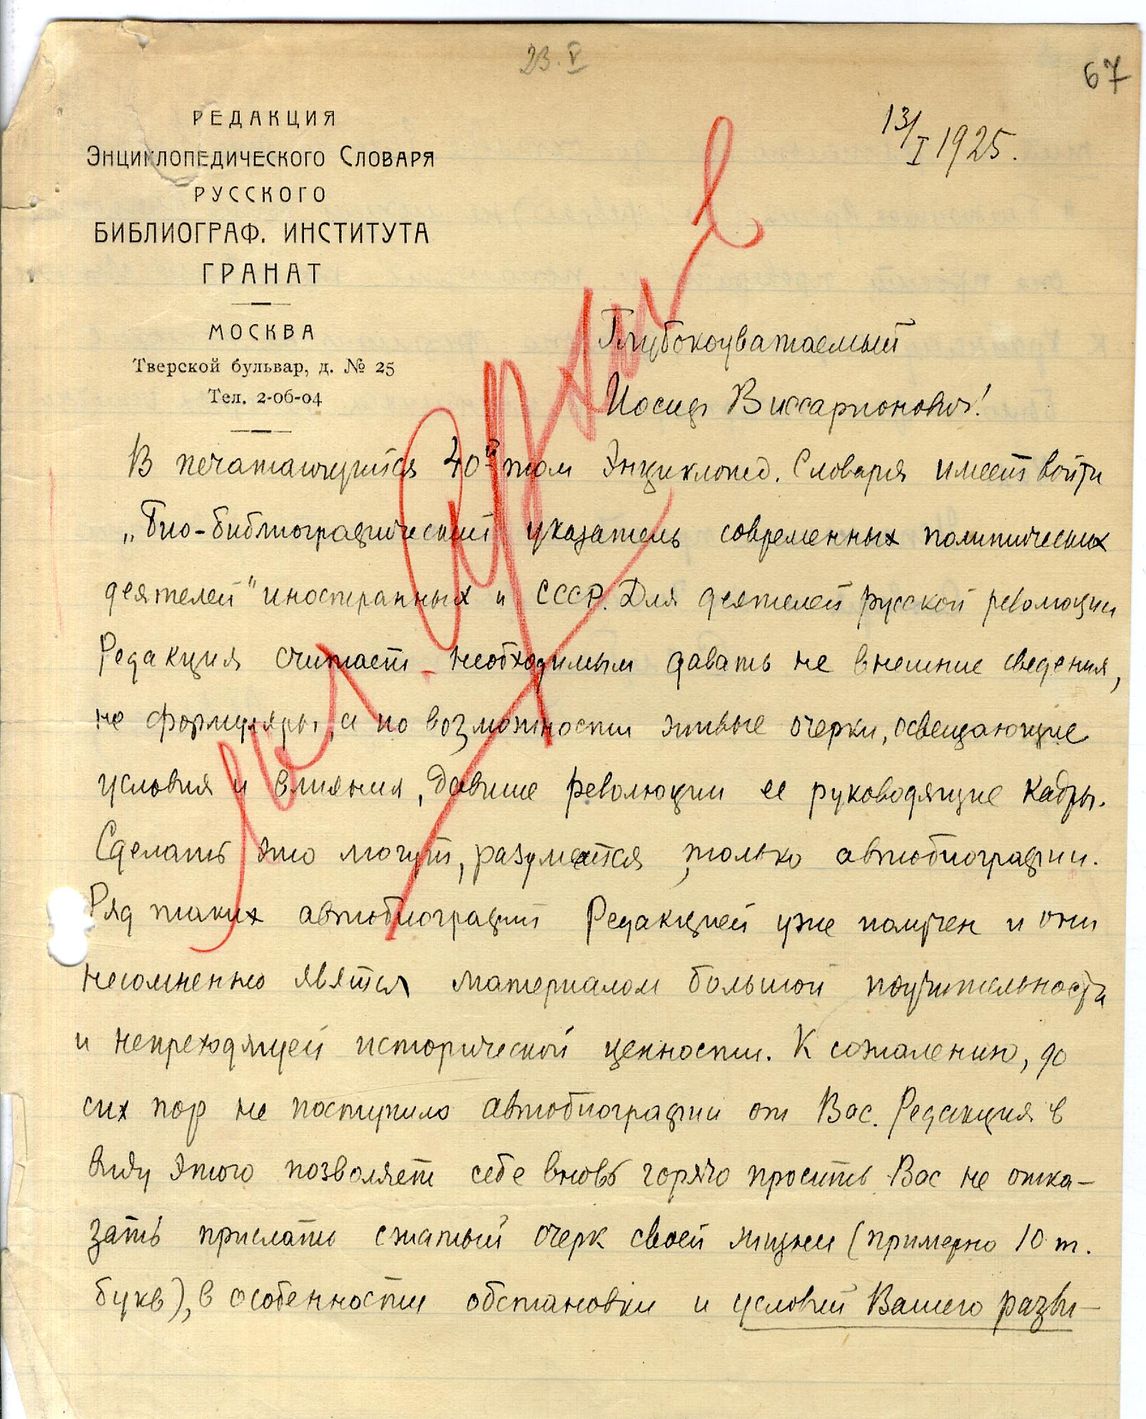 23.V
67
РЕДАКЦИЯ
ЭНЦИКЛОПЕДИЧЕСКОГО СЛОВАРЯ
РУССКОГО
БИБЛИОГРАФ. ИНСТИТУТА
ГРАНАТ
МОСКВА
Тверской бульвар, д. № 25
Тел. 2-06-04
13/I 1925.
Глубокоуважаемый
Иосиф Виссарионович!
В печатающийся 40й том Энциклопед. Словаря имеет войти
„Био-библиографический указатель современных политических
деятелей" иностранных и СССР. Для деятелей русской революции
Редакция считает необходимым давать не внешние сведения,
не формуляры, а по возможности живые очерки, освещающие
условия и влияния, давшие революции ее руководящие кадры.
Сделать это могут, разумеется, только автобиографии.
Ряд таких автобиографий Редакцией уже получен и они
несомненно явятся материалом большой поучительности
и непреходящей исторической ценности. К сожалению, до
сих пор не поступило автобиографии от Вас. Редакция в
виду этого позволяет себе вновь горячо просить Вас не отка-
зать прислать сжатый очерк своей жизни (примерно 10 т.
букв), в особенности обстановки и условий Вашего разви-